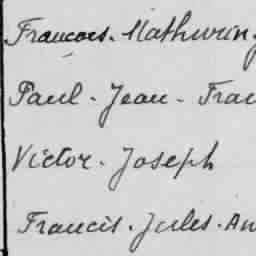 Francois. Mathurin
Paul. Jean. Fran
Victor. Joseph
Francis. Jules. An